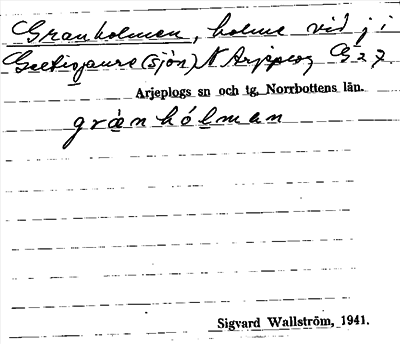 Granholmen, holme vid j i
(sjön) N Arjeplog G 27
Arjeplogs sn och tg. Norrbottens län.
grànhólman
Sigvard Wallström, 1941.